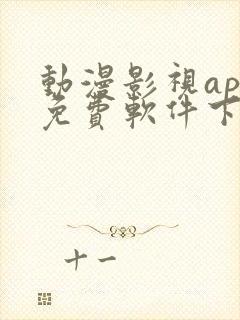 動漫影視ap
免費軟件下
十一